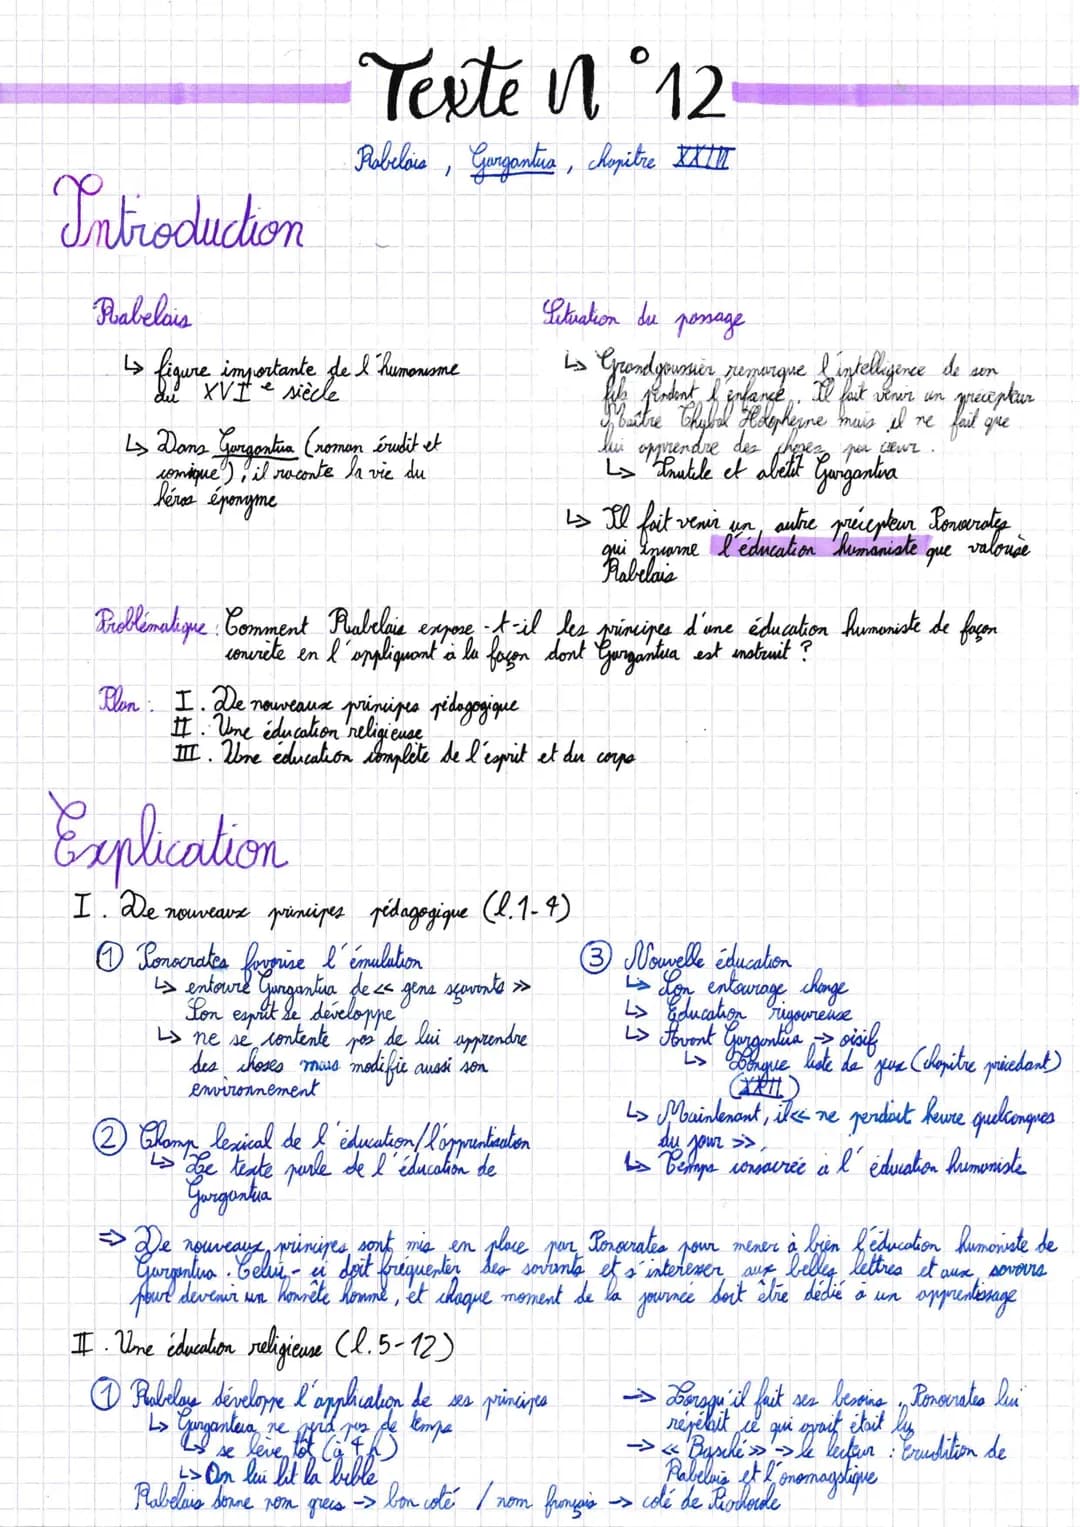 Texte n°12
Rabelais, Gargantua, chapitre XXIII
Introduction
Rabelais
↳ figure importante de l'humanisme
du XVIe siècle
↳ Dans Gargantua (roman érudit et
comique), il raconte la vie du
héros éponyme
Situation du passage
↳ Grandgousier remarque l'intelligence de son
fils pendant l'enfance. Il fait venir un précepteur
Maître Thubal Holopherne mais il ne fait que
lui apprendre des choses par cœur.
↳ Inutile et abêtit Gargantua
↳ Il fait venir un autre précepteur Ponocrates
qui incarne l'éducation humaniste que valorise
Rabelais
Problématique : Comment Rabelais expose-t-il les principes d'une éducation humaniste de façon
concrète en l'appliquant à la façon dont Gargantua est instruit ?
Plan : I. De nouveaux principes pédagogique
II. Une éducation religieuse
III. Une éducation complète de l'esprit et du corps
Explication
I. De nouveaux principes pédagogique (l.1-4)
① Ponocrates favorise l'émulation
↳ entoure Gargantua de « gens sçavants »
Son esprit se développe
↳ ne se contente pas de lui apprendre
des choses mais modifie aussi son
environnement
② Champ lexical de l'éducation/l'apprentisation
↳ Le texte parle de l'éducation de
Gargantua
③ Nouvelle éducation
↳ Son entourage change
↳ Education rigoureuse
↳ Avant Gargantua → oisif
↳ Longue liste de jeux (chapitre précedant)
(XXII)
↳ Maintenant, il « ne perdait heure quelconques
du jour »,
↳ Temps consacrée à l'éducation humaniste
⇒ De nouveaux principes sont mis en place par Ponocrates pour mener à bien l'éducation humaniste de
Gargantua. Celui-ci doit fréquenter des savants et s'intéresser aux belles lettres et aux savoirs
pour devenir un honnête homme, et chaque moment de la journée doit être dédié à un apprentissage
II. Une éducation religieuse (l.5-12)
① Rabelays développe l'application de ses principes
↳ Gargantua ne perd pas de temps
↳ se lève tôt (à 4h)
↳ On lui lit la bible
Rabelais donne nom grecs → bon coté / nom français → coté de Picrochole
→ Lorsqu'il fait ses besoins, Ponocrates lui
répétait ce qui avait était lu
→ « Basché » → le lecteur : Erudition de
Rabelais et l'onomagstique